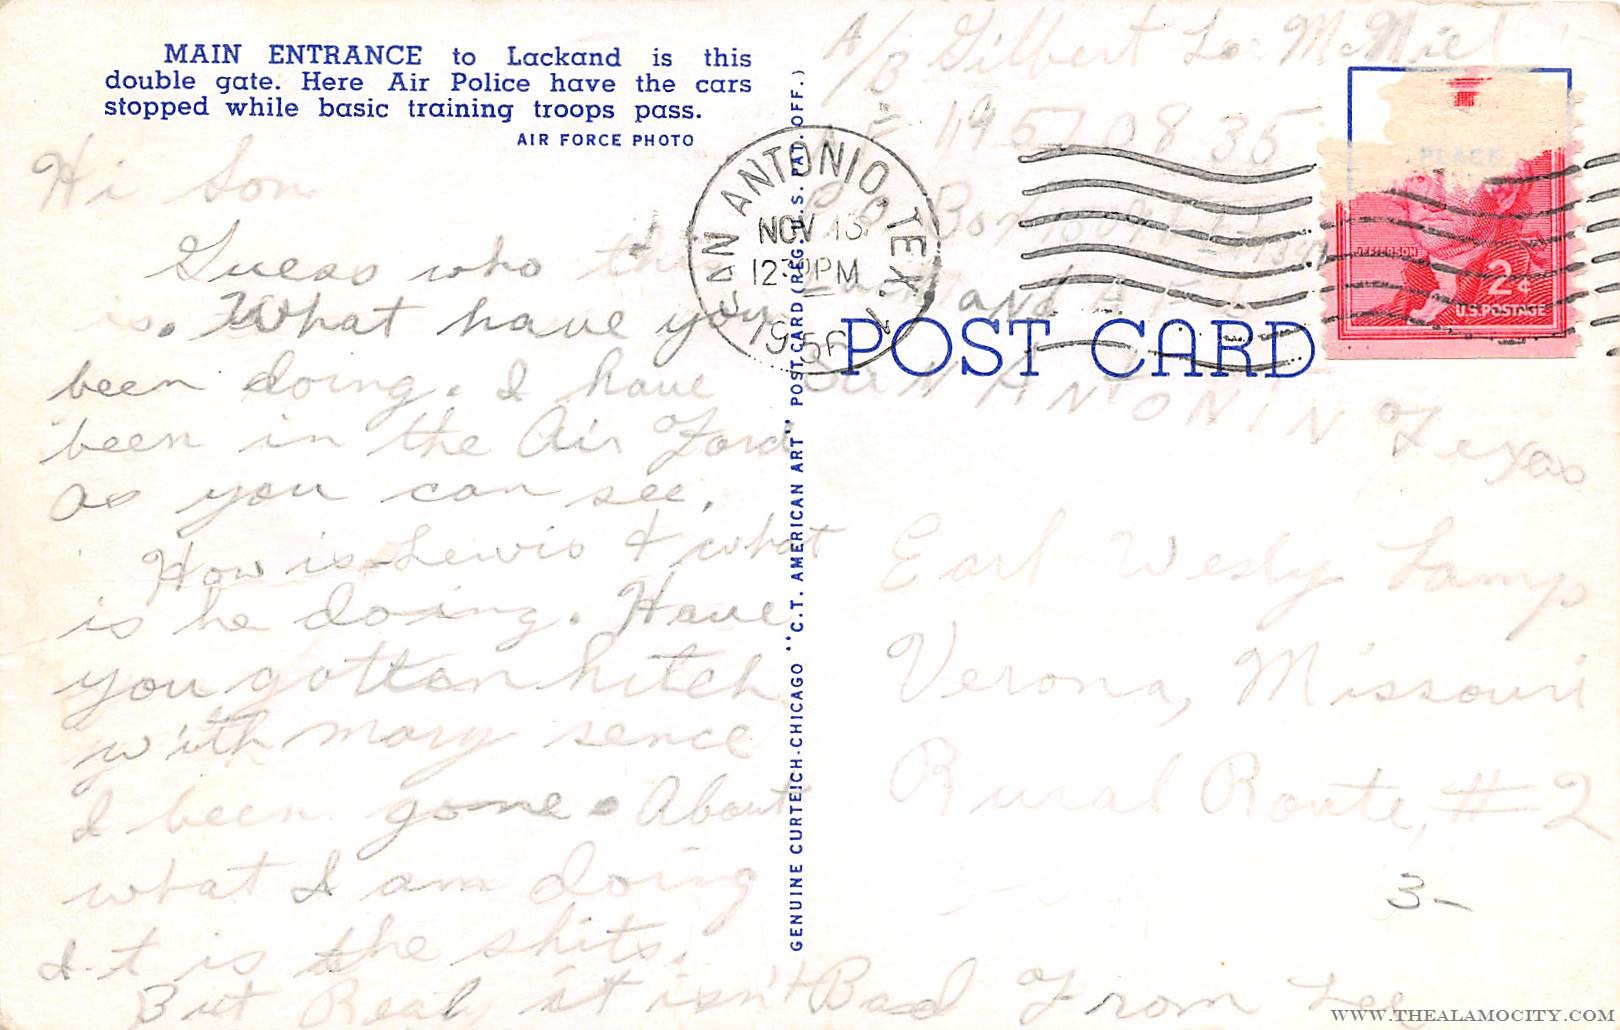 MAIN ENTRANCE to Lackand is this
double gate. Here Air Police have the cars
stopped while basic training troops pass.
AIR FORCE PHOTO
Hi Son
Guess who this
is. What have you
been doing. I have
been in the Air Ford
as you can see.
How is Lewis & what
is he doing. Have
you gotten hitch
with mary sence
I been gone. About
what I am doing
It is the shits.
But Realy it isn't Bad From Lee
GENUINE CURTEICH-CHICAGO "C.T. AMERICAN ART" POST CARD (REG. U.S. PAT. OFF.)
A/B Gilbert L. McNiel
AF 19570835
P.O. Box
SAN ANTONIN Texas
SAN ANTONIO, TEX.
NOV 13
12 30 PM
1956
PLACE
JEFFERSON
2¢
U.S. POSTAGE
POST CARD
Earl Wesly Lamp
Verona, Missouri
Rural Route, #2
3-
WWW.THEALAMOCITY.COM